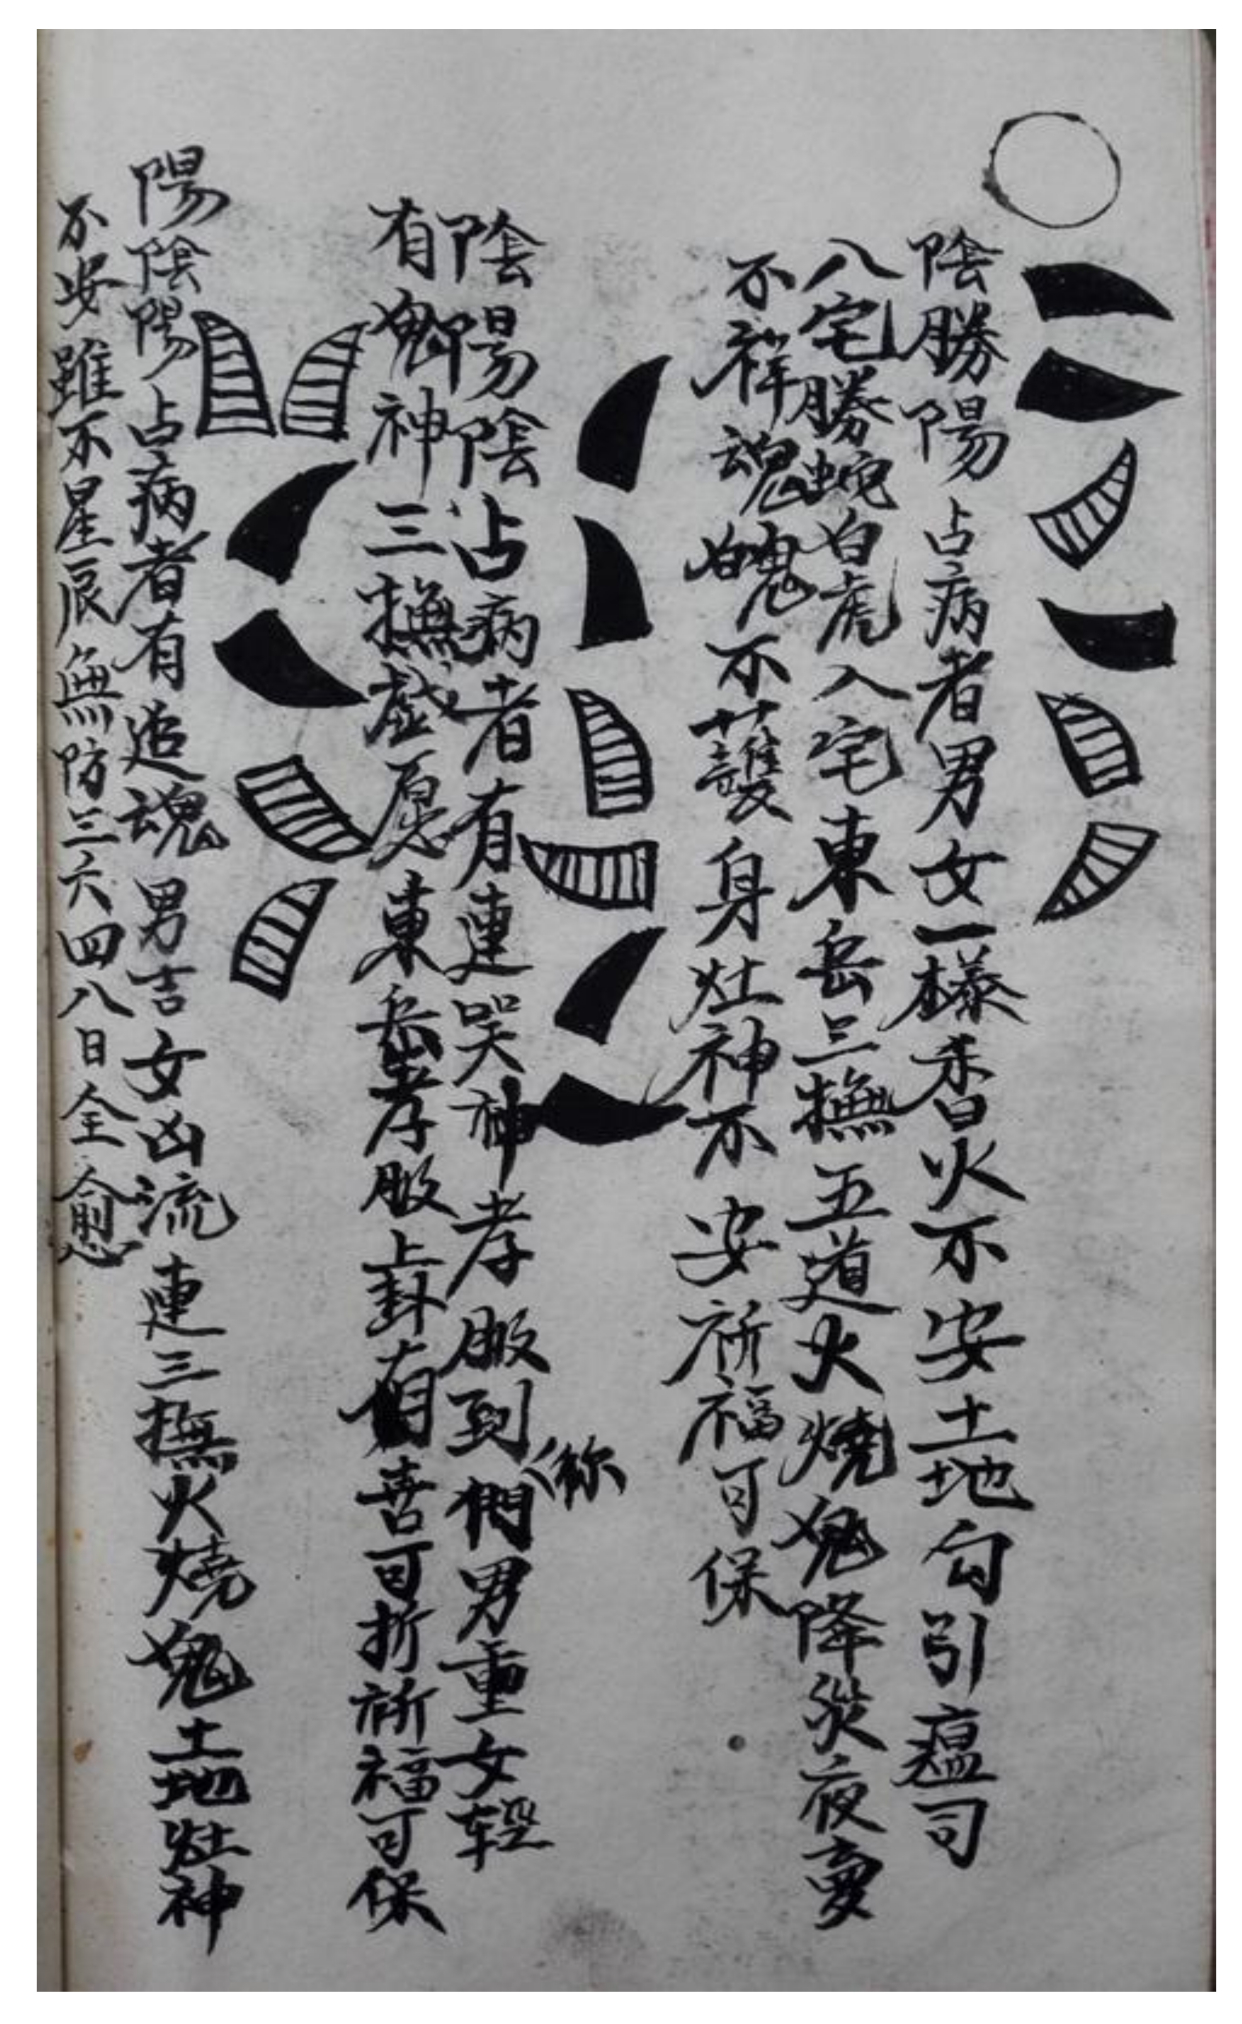 陰勝陽占病者男女一樣香火不安土地勾引瘟司
八宅勝蛇白虎入宅東岳三撫五道火燒鬼降災夜夢
不祥魂魄不護身灶神不安祈福可保
陰陽陰占病者有連哭神孝服到們男重女輕
你
有鬼神三撫愿東岳孝服上卦有喜可折祈福可保
陽陰陽占病者有追魂男吉女凶流連三撫火燒鬼土地灶神
不安雖不星辰無防三六四八日全愈